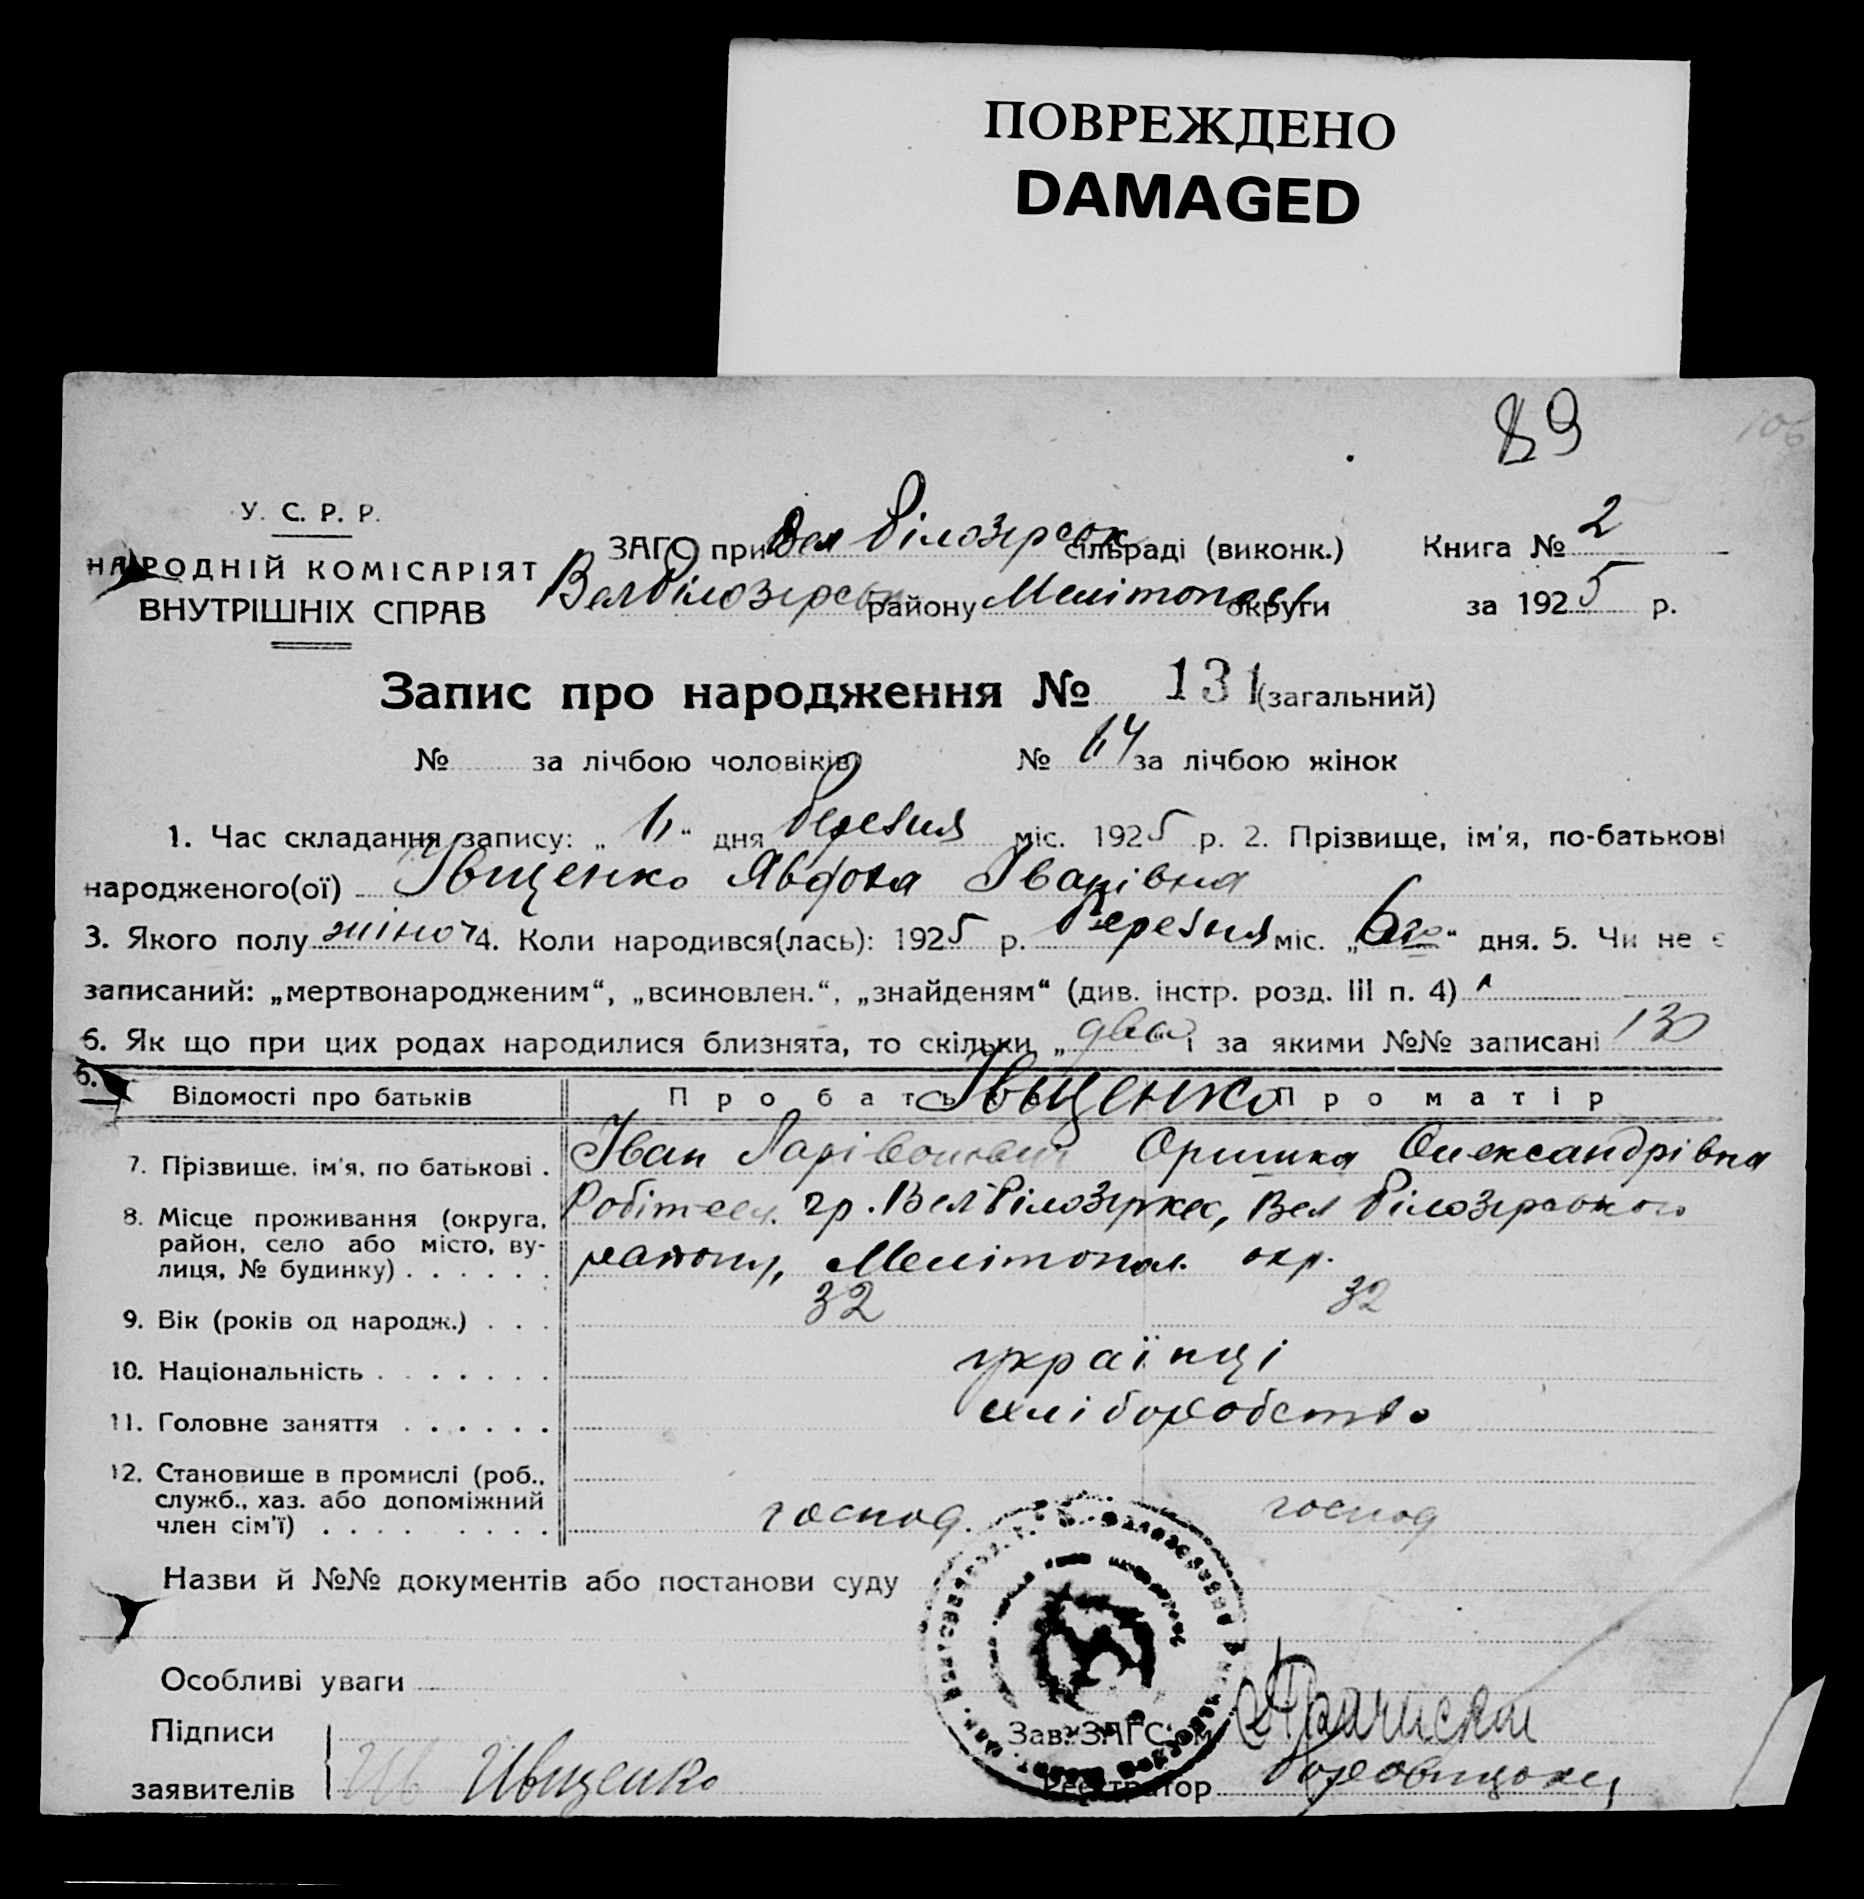 ПОВРЕЖДЕНО
DAMAGED
89
106
У. С. Р. Р.
НАРОДНІЙ КОМІСАРІЯТ
ВНУТРІШНІХ СПРАВ
ЗАГС при Вел Білозірськ сільраді (виконк.) Книга № 2
Вел Білозірськ району Мелітопол округи за 1925 р.
Запис про народження № 131 (загальний)
№ за лічбою чоловіків № 64 за лічбою жінок
1. Час складання запису: „ " дня березня міс. 1925 р. 2. Прізвище, ім'я, по-батькові
народженого(ої) Івщенко Явдоха Іванівна
3. Якого полу жіноч 4. Коли народився(лась): 1925 р. березня міс. „6го" дня. 5. Чи не є
записаний: „мертвонародженим", „всиновлен.", „знайденям" (див. інстр. розд. III п. 4)
6. Як що при цих родах народилися близнята, то скільки „двой і за якими №№ записані 130
Відомості про батьків Про бать Івщенко Про матір
7. Прізвище, ім'я, по батькові . Іван Ларівонович Оришка Олександрівна
8. Місце проживання (округа, гр. Вел Білозіркес, Вел Білозірського
район, село або місто, ву-
лиця, № будинку) . . . . . . району, Мелітопол. окр.
9. Вік (років од народж.) . . . 32 32
10. Національність . . . . . . . українці
11. Головне заняття . . . . . . хліборобство
12. Становище в промислі (роб.,
служб., хаз. або допоміжний
член сім'ї) . . . . . . . . господ. господ
Назви й №№ документів або постанови суду
Особливі уваги
Підписи Зав. ЗАГС'ом
заявителів Ивщенко Реєстратор